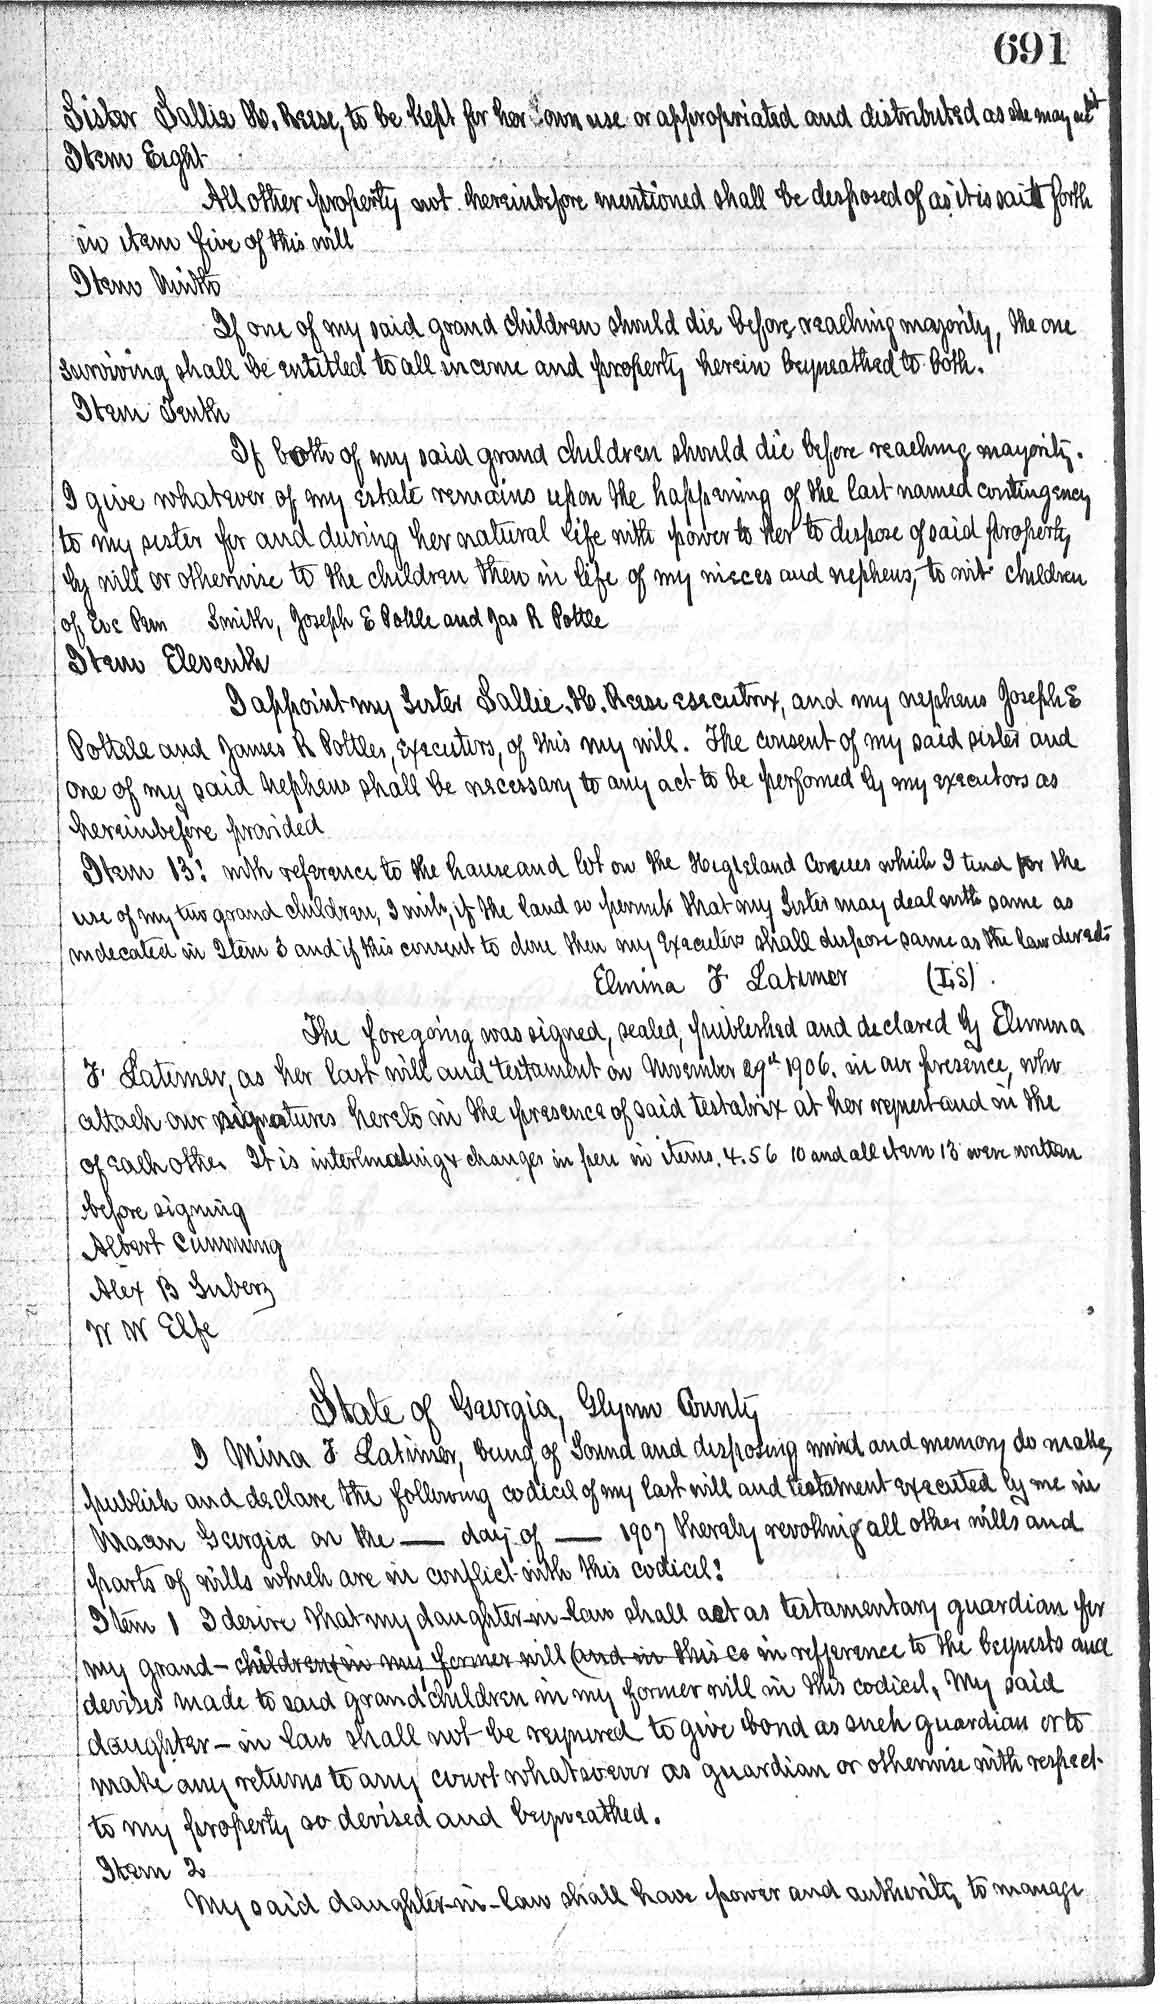 691
Sister Sallie H. Reese, to be kept for her own use or appropriated and distributed as she may
Item Eight
All other property not hereinbefore mentioned shall be desposed of as it is sait forth
in item five of this will
Item Ninth
If one of my said grand children should die before reaching majority, the one
surviving shall be entitled to all income and property herein bequeathed to both.
Item Tenth
If both of my said grand children should die before reaching majority.
I give whatever of my estate remains upon the happening of the last named contingency
to my sister for and during her natural life with power to her to dispose of said property
by will or otherwise to the children then in life of my nieces and nephews, to wit children
of Smith, Joseph E Pottle and Jas R Pottle
Item Eleventh
I appoint my Sister Sallie. H. Reese executrix, and my nephews Joseph E
Pottele and James R Pottles, Executors, of this my will. The consent of my said sister and
one of my said nephews shall be necessary to any act to be performed by my executors as
hereinbefore provided
Item 13: with reference to the house and lot on the which I tend for the
use of my two grand children, I wish, if the land so permits that my Sister may deal with same as
indecated in Item 3 and if this consent to done then my Executors shall dispose same as the law derects
Elmina F Latimer (L,S).
The foregoing was signed, sealed, published and declared by Elmina
F. Latimer, as her last will and testament on November 29th 1906. in our presence, who
attach our signatures hereto in the presence of said testatrix at her request and in the
of each other It is changes in in items. 4. 5 6 10 and all item 13 were written
before signing
Albert Cumming
Alex B
W W Elfe
State of Georgia, Glynn County
I Mina F Latimer, being of Sound and disposing mind and memory do make,
publish and declare the following codicil of my last will and testament executed by me in
Macon Georgia on the — day of — 1907 thereby revoking all other wills and
parts of wills which are in conflict with this codicil:
Item 1 I desire that my daughter-in-law shall act as testamentary guardian for
my grand-children (in my former will (and in this co in refference to the bequests and
devises made to said grand children in my former will in this codicil, My said
daughter-in law shall not be required to give bond as such guardian or to
make any returns to any court whatsoever as guardian or otherwise with respect
to my property so devised and bequeathed.
Item 2
My said daughter-in-law shall have power and authority to manage